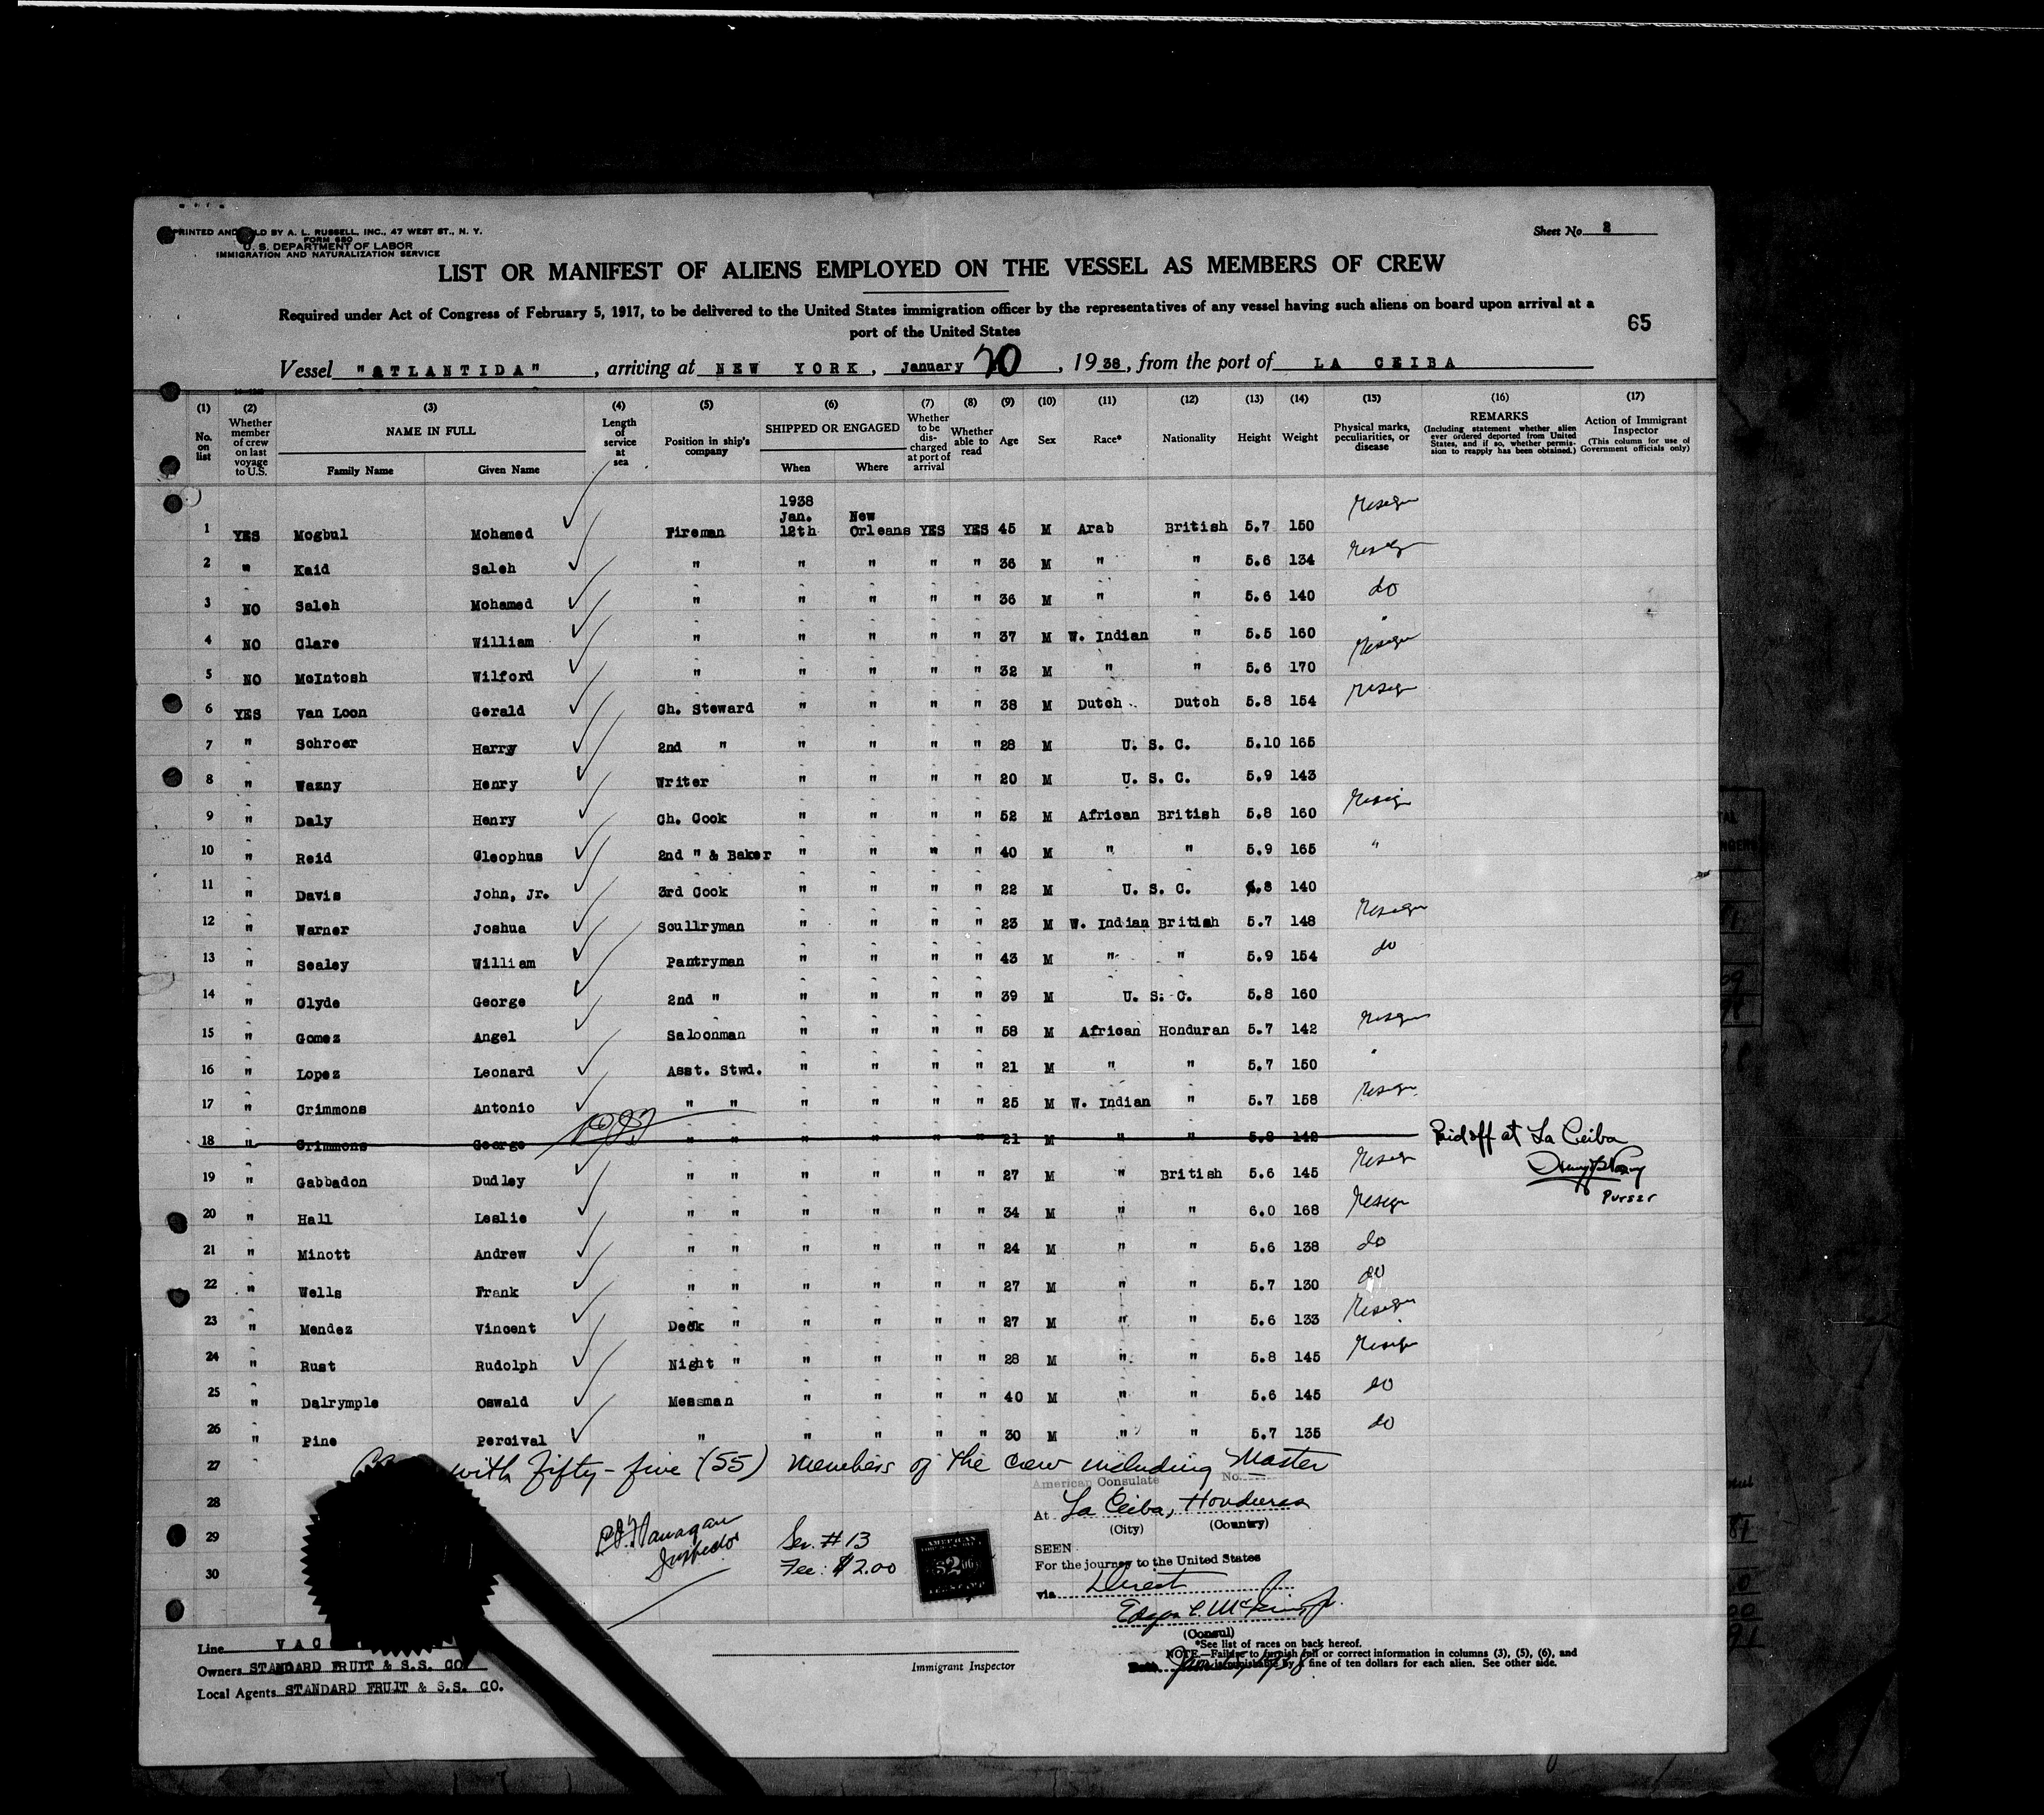 PRINTED AND SOLD BY A. L. RUSSELL, INC., 47 WEST ST., N. Y.
FORM 680
U. S. DEPARTMENT OF LABOR
IMMIGRATION AND NATURALIZATION SERVICE
Sheet No. 2
LIST OR MANIFEST OF ALIENS EMPLOYED ON THE VESSEL AS MEMBERS OF CREW
Required under Act of Congress of February 5, 1917, to be delivered to the United States immigration officer by the representatives of any vessel having such aliens on board upon arrival at a
port of the United States
65
Vessel "ATLANTIDA", arriving at NEW YORK, January 20, 1938, from the port of LA CEIBA
(1) No. on list
(2) Whether member of crew on last voyage to U.S.
(3) NAME IN FULL Family Name Given Name
(4) Length of service at sea
(5) Position in ship's company
(6) SHIPPED OR ENGAGED When Where
(7) Whether to be discharged at port of arrival
(8) Whether able to read
(9) Age
(10) Sex
(11) Race*
(12) Nationality
(13) Height
(14) Weight
(15) Physical marks, peculiarities, or disease
(16) REMARKS (Including statement whether alien ever ordered deported from United States, and if so, whether permission to reapply has been obtained.)
(17) Action of Immigrant Inspector (This column for use of Government officials only)
1 YES Mogbul Mohamed Fireman 1938 Jan. 12th New Orleans YES YES 45 M Arab British 5.7 150
2 " Kaid Saleh " " " " " 36 M " " 5.6 134
3 NO Saleh Mohamed " " " " " 36 M " " 5.6 140 do
4 NO Clare William " " " " " 37 M W. Indian " 5.5 160 "
5 NO McIntosh Wilford " " " " " 32 M " " 5.6 170
6 YES Van Loon Gerald Ch. Steward " " " " 38 M Dutch Dutch 5.8 154
7 " Schroer Harry 2nd " " " " " 28 M U. S. C. 5.10 165
8 " Wazny Henry Writer " " " " 20 M U. S. C. 5.9 143
9 " Daly Henry Ch. Cook " " " " 52 M African British 5.8 160
10 " Reid Cleophus 2nd " & Baker " " " " 40 M " " 5.9 165 "
11 " Davis John, Jr. 3rd Cook " " " " 22 M U. S. C. 5.8 140
12 " Warner Joshua Scullryman " " " " 23 M W. Indian British 5.7 148
13 " Sealey William Pantryman " " " " 43 M " " 5.9 154 do
14 " Clyde George 2nd " " " " " 39 M U. S. C. 5.8 160
15 " Gomez Angel Saloonman " " " " 58 M African Honduran 5.7 142
16 " Lopez Leonard Asst. Stwd. " " " " 21 M " " 5.7 150 "
17 " Crimmons Antonio " " " " " " 25 M W. Indian " 5.7 158
18 " Crimmons George " " " " " " 21 M " " Paid off at La Ceiba
Purser
19 " Gabbadon Dudley " " " " " " 27 M " British 5.6 145
20 " Hall Leslie " " " " " " 34 M " " 6.0 168
21 " Minott Andrew " " " " " " 24 M " " 5.6 138 do
22 " Wells Frank " " " " " " 27 M " " 5.7 130 do
23 " Mendez Vincent Deck " " " " " 27 M " " 5.6 133
24 " Rust Rudolph Night " " " " " 28 M " " 5.8 145
25 " Dalrymple Oswald Messman " " " " 40 M " " 5.6 145 do
26 " Pine Percival " " " " " 30 M " " 5.7 135 do
27 with Fifty-five (55) members of the crew including Master
28
29
30
American Consulate No.
At La Ceiba, Honduras
(City) (Country)
SEEN
For the journey to the United States
via Direct
(Consul)
Inspector
Ser. #13
Fee: $2.00
AMERICAN
$2.00
Line VAC
Owners STANDARD FRUIT & S.S. CO.
Local Agents STANDARD FRUIT & S.S. CO.
Immigrant Inspector
*See list of races on back hereof.
NOTE.—Failure to furnish full or correct information in columns (3), (5), (6), and
is punishable by a fine of ten dollars for each alien. See other side.